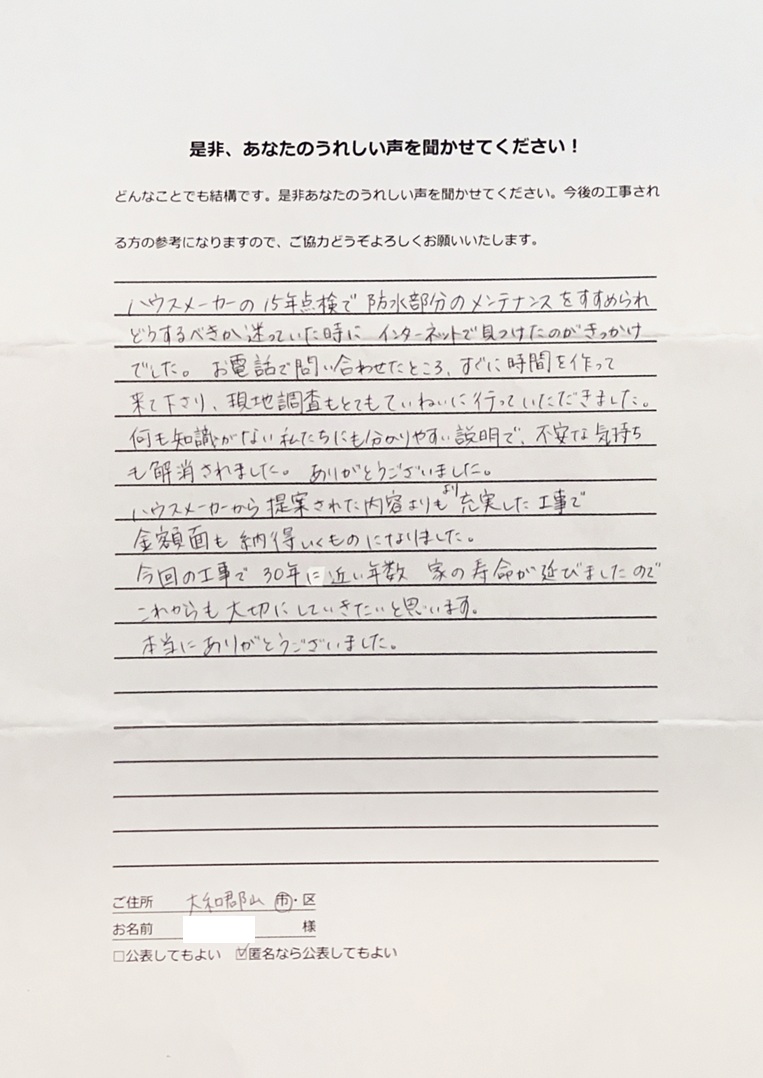 是非、あなたのうれしい声を聞かせてください！
どんなことでも結構です。是非あなたのうれしい声を聞かせてください。今後の工事され
る方の参考になりますので、ご協力どうぞよろしくお願いいたします。
ハウスメーカーの15年点検で防水部分のメンテナンスをすすめられ
どうするべきか迷っていた時にインターネットで見つけたのがきっかけ
でした。お電話で問い合わせたところ、すぐに時間を作って
来て下さり、現地調査もとてもていねいに行っていただきました。
何も知識がない私たちにも分かりやすい説明で、不安な気持ち
も解消されました。ありがとうございました。
ハウスメーカーから提案された内容よりもより充実した工事で
金額面も納得いくものになりました。
今回の工事で30年に近い年数 家の寿命が延びましたので
これからも大切にしていきたいと思います。
本当にありがとうございました。
ご住所 大和郡山 市・区
お名前 様
□公表してもよい ☑匿名なら公表してもよい